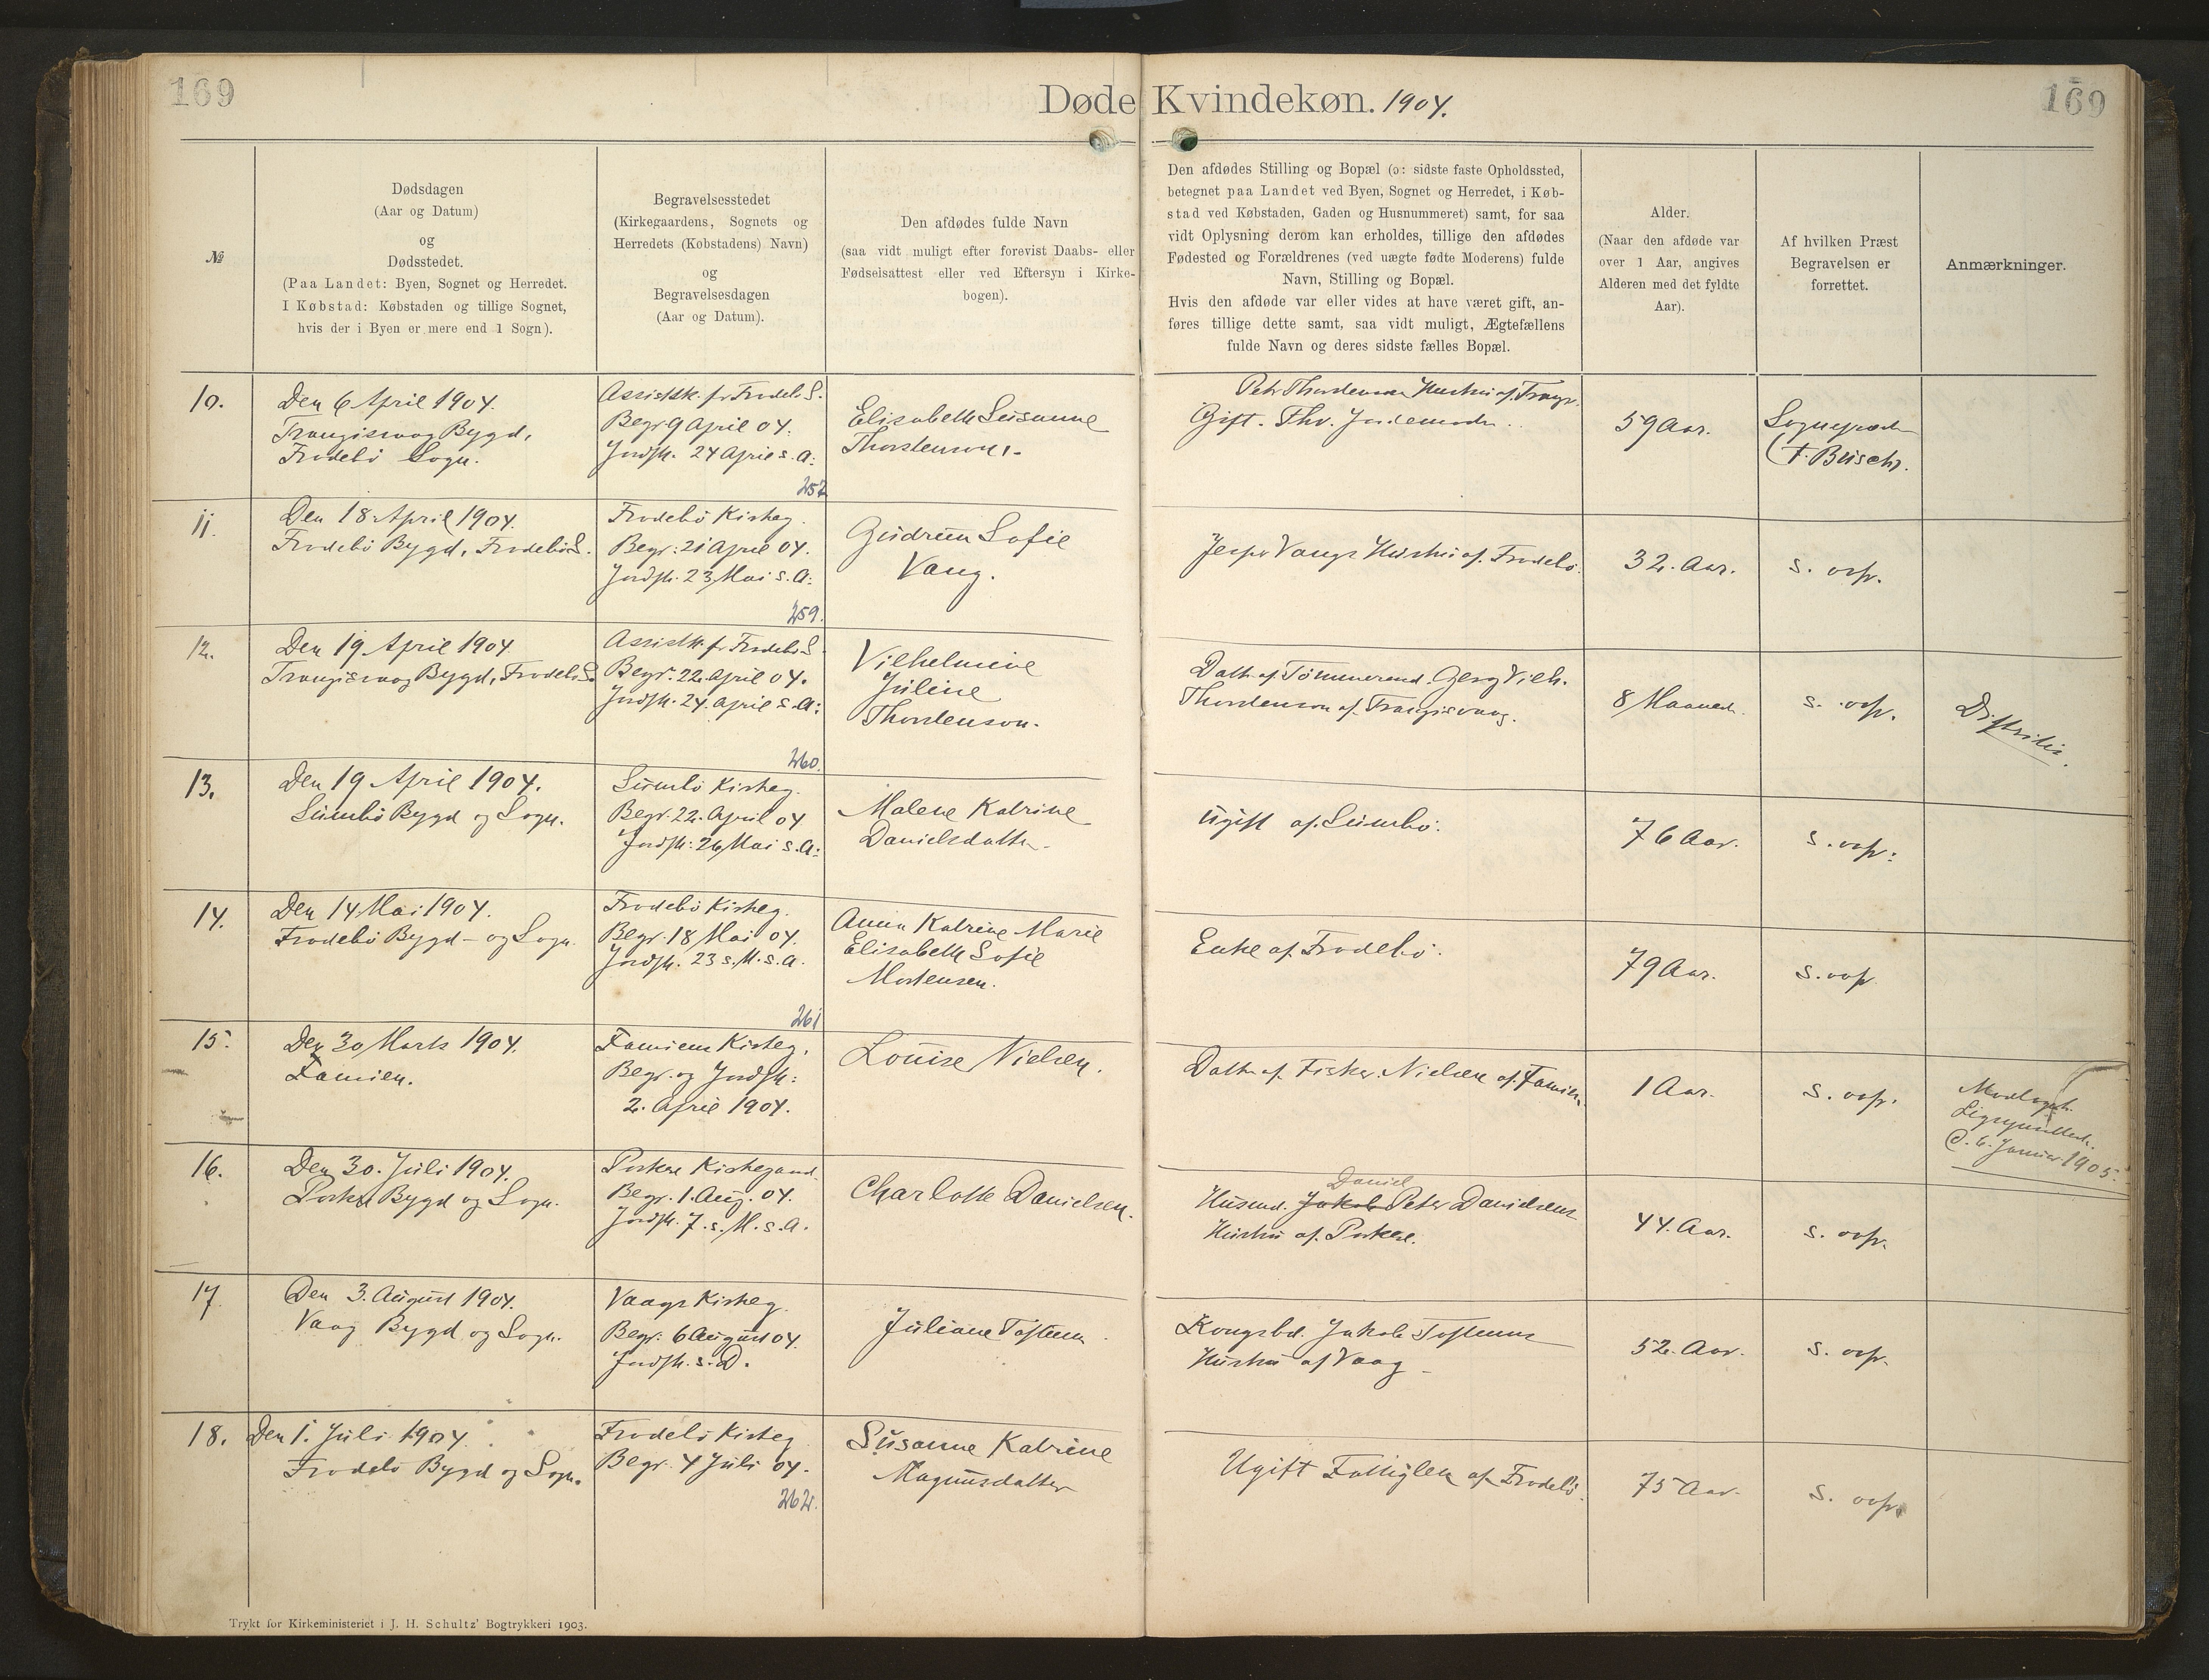 169
Døde Kvindekøn. 1904.
169
№
Dødsdagen
(Aar og Datum)
og
Dødsstedet.
(Paa Landet: Byen, Sognet og Herredet.
I Købstad: Købstaden og tillige Sognet,
hvis der i Byen er mere end 1 Sogn).
Begravelsesstedet
(Kirkegaardens, Sognets og
Herredets (Købstadens) Navn)
og
Begravelsesdagen
(Aar og Datum).
Den afdødes fulde Navn
(saa vidt muligt efter forevist Daabs- eller
Fødselsattest eller ved Eftersyn i Kirke-
bogen).
Den afdødes Stilling og Bopæl (ɔ: sidste faste Opholdssted,
betegnet paa Landet ved Byen, Sognet og Herredet, i Køb-
stad ved Købstaden, Gaden og Husnummeret) samt, for saa
vidt Oplysning derom kan erholdes, tillige den afdødes
Fødested og Forældrenes (ved uægte fødte Moderens) fulde
Navn, Stilling og Bopæl.
Hvis den afdøde var eller vides at have været gift, an-
føres tillige dette samt, saa vidt muligt, Ægtefællens
fulde Navn og deres sidste fælles Bopæl.
Alder.
(Naar den afdøde var
over 1 Aar, angives
Alderen med det fyldte
Aar).
Af hvilken Præst
Begravelsen er
forrettet.
Anmærkninger.
10.
Den 6 April 1904.
Trangisvaag Bygd,
Frodebö Sogn.
Assistk. for Frodebö S.
Begr 9 April 04.
Jordfk. 24 April s. A:
252
Elisabeth Susanne
Thorstenson.
Petr Thorstenson Hustru af Trangv.
Gift. Fhv. Jordemoder.
59 Aar.
Sognepræst
F. Busch.
11.
Den 18 April 1904.
Frodebö Bygd, Frodebö S.
Frodebö Kirkeg.
Begr: 21 April 04.
Jordfk. 23 Mai s. A:
259.
Gudrun Sofie
Vang.
Jesper Vangs Hustru af Frodebö.
32. Aar.
s. ovf.
12.
Den 19 April 1904
Trangisvaag Bygd, Frodebö S.
Assistk. fr Frodebö S.
Begr. 22. April 04.
Jordfk. 24. April s. A:
260.
Vilhelmine
Juline
Thorstenson.
Datter af Tömmermd. Georg Vilh.
Thorstenson af Trangisvaag.
8 Maaneder.
s. ovf.
Difteritis.
13.
Den 19 April 1904.
Sumbö Bygd og Sogn.
Sumbö Kirkeg.
Begr. 22. April 04
Jordfk: 26 Mai s. A:
Malene Katrine
Danielsdatter.
Ugift af Sumbö.
76 Aar.
s. ovf:
14.
Den 14 Mai 1904.
Frodebö Bygd - og Sogn.
Frodebö Kirkeg.
Begr. 18 Mai 04.
Jordfk. 23 s. M. s. A.
261
Anna Katrine Marie
Elisabeth Sofie
Mortensen.
Enke af Frodebö.
79 Aar.
s. ovf
15.
Den 30 Marts 1904.
Famien.
Famiens Kirkeg.
Begr. og Jordfk:
2. April 1904.
Louise Nielsen.
Datter af Fisker Nielsen af Famien.
1 Aar.
s. ovf.
Modtaget
D. 6. Januar 1905.
16.
Den 30. Juli 1904.
Porkeri Bygd og Sogn.
Porkeri Kirkegaard.
Begr. 1. Aug. 04.
Jordfk. 7. s. M. s. A.
Charlotte Danielsen.
Daniel
Husmd. Jakob Peter Danielsens
Hustru af Porkeri.
44. Aar.
s. ovf.
17.
Den 3. August 1904.
Vaag Bygd og Sogn.
Vaags Kirkeg.
Begr: 6 August 04.
Jordfk. s. D.
Juliane Toftum.
Kongsbd. Jakob Toftums
Hustru af Vaag
52. Aar.
s. ovf.
18.
Den 1. Juli 1904.
Frodebö Bygd og Sogn.
Frodebö Kirkeg
Begr. 4 Juli 04.
262.
Susanne Katrine
Magnusdatter
Ugift Fattiglem af Frodebö.
75 Aar.
s. ovf.
Trykt for Kirkeministeriet i J. H. Schultz' Bogtrykkeri 1903.